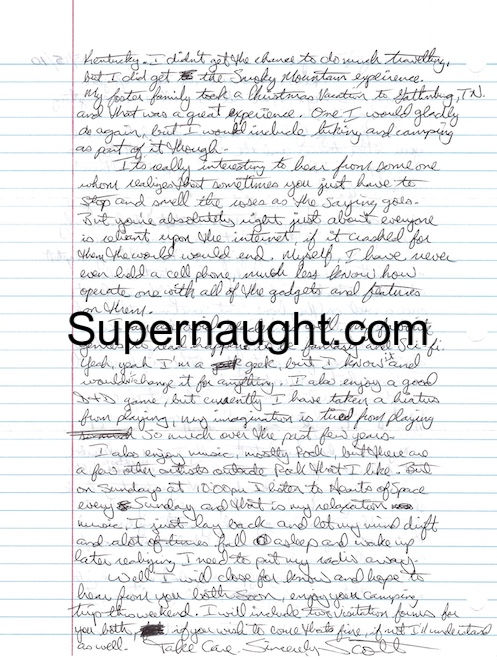 Kentucky. I didn't get the chance to do much travelling,
but I did get the Smoky Mountain experience.
My foster family took a Christmas Vacation to Gatlinburg, TN.
and that was a great experience. One I would gladly
do again, but I would include hiking and camping
as part of it though.
Its really interesting to hear from someone
whom realizes that sometimes you just have to
stop and smell the roses as the saying goes.
But you're absolutely right just about everyone
is reliant upon the internet, if it crashed for
them the world would end. Myself, I have never
even held a cell phone, much less know how
operate one with all of the gadgets and features
on them.
Supernaught.com
Yeah, yeah I'm a geek, but I know it and
wouldn't change it for anything. I also enjoy a good
D+D game, but currently I have taken a hiatus
from playing, my imagination is tired from playing
so much over the past few years.
I also enjoy music, mostly Rock, but there are
a few other artists outside Rock that I like. But
on Sundays at 10:00pm I listen to Hearts of Space
every Sunday and that is my relaxation
music. I just lay back and let my mind drift
and alot of times fall asleep and wake up
later realizing I need to put my radio away.
Well I will close for know and hope to
hear from you both soon, enjoy your camping
trip this weekend. I will include two visitation forms for
you both, if you wish to come thats fine, if not I'll understand
as well. Take Care Sincerely Scott